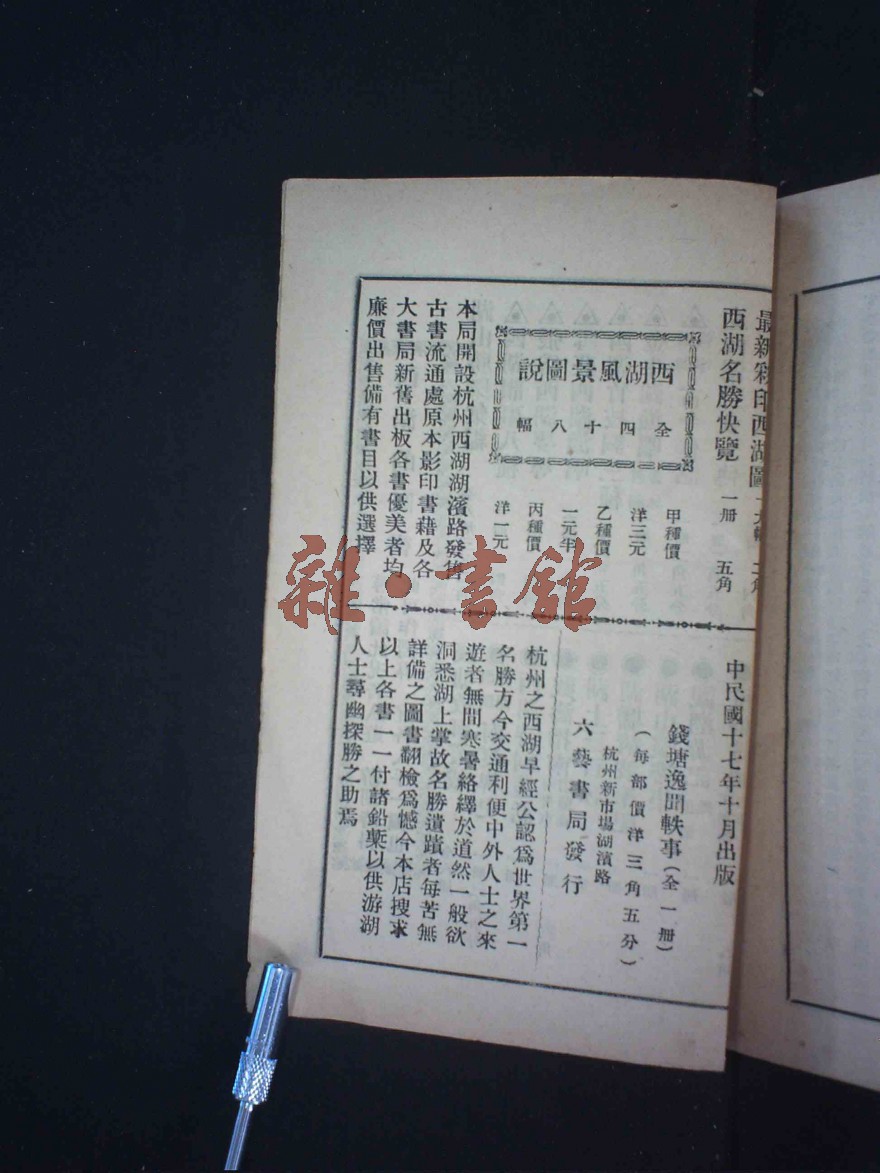 最新彩印西湖圖 一大幅 二角
西湖名勝快覽 一册 五角
西湖風景圖說
全四十八幅
甲種價
洋三元
乙種價
一元半
丙種價
洋一元
本局開設杭州西湖湖濱路發售
古書流通處原本影印書藉及各
大書局新舊出板各書優美者均
廉價出售備有書目以供選擇
中民國十七年十月出版
錢塘逸聞軼事(全一册)
(每部價洋三角五分)
杭州新市場湖濱路
六藝書局發行
杭州之西湖早經公認爲世界第一
名勝方今交通利便中外人士之來
遊者無間寒暑絡繹於道然一般欲
洞悉湖上掌故名勝遺蹟者每苦無
詳備之圖書翻檢爲憾今本店搜求
以上各書一一付諸鉛槧以供游湖
人士尋幽探勝之助焉
雜·書館